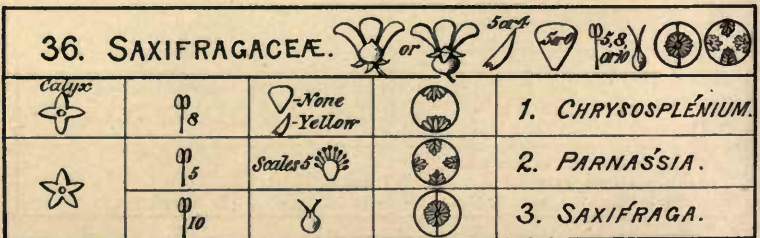 36. SAXIFRAGACEÆ. or 5 or 4 5 or 0 5,8, or 10
Calyx
8 -None
-Yellow 1. CHRYSOSPLÉNIUM.
5 Scales 5 2. PARNÁSSIA.
10 3. SAXÍFRAGA.